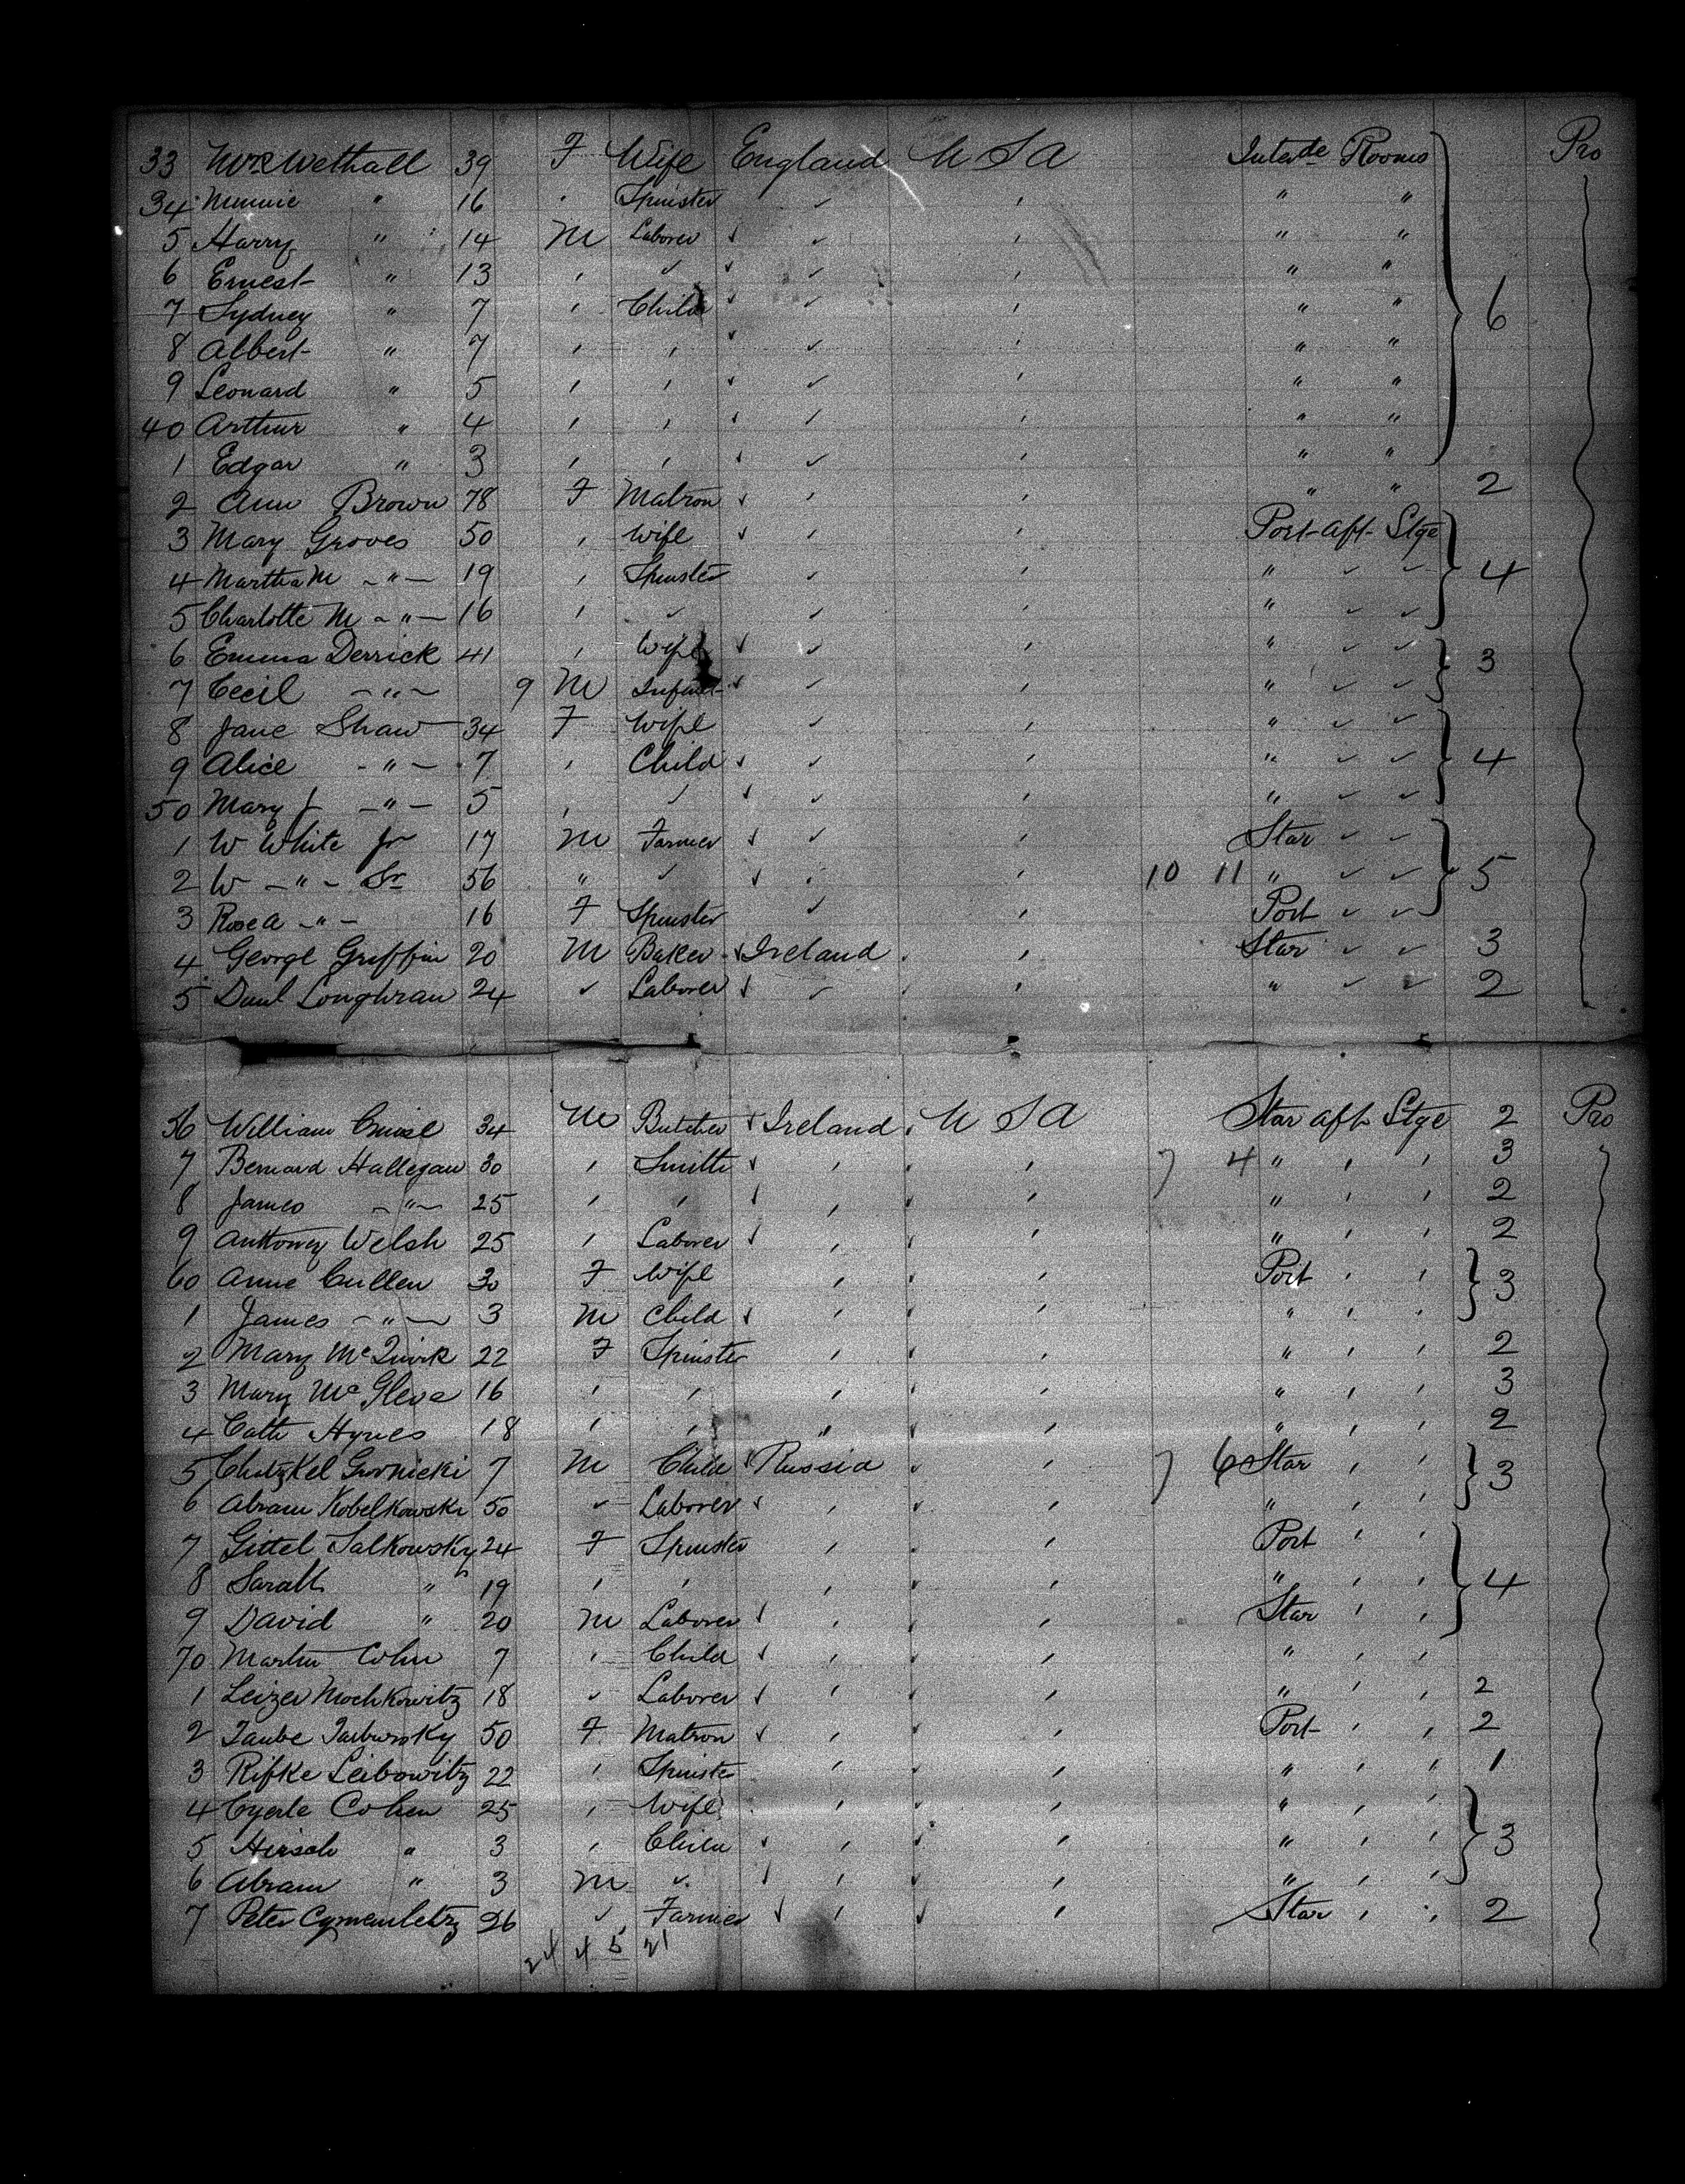 33 Mrs Wethall 39 F Wife England U S A Interde Rooms Pro
34 Minnie " 16 Spinster ✓ " "
5 Harry " 14 M Laborer ✓ ✓ " "
6 Ernest " 13 ✓ ✓ ✓ " "
7 Sydney " 7 Child ✓ ✓ " " 6
8 Albert " 7 ✓ " "
9 Leonard " 5 ✓ ✓ " "
40 Arthur " 4 " "
1 Edgar " 3 ✓ ✓ " "
2 Ann Brown 78 F Matron ✓ " " 2
3 Mary Groves 50 Wife ✓ Port aft Stge
4 Martha M - " - 19 Spinster ✓ " ✓ ✓ 4
5 Charlotte M - " - 16 ✓ ✓ " ✓ ✓
6 Emma Derrick 41 Wife ✓ ✓ " ✓ ✓ 3
7 Cecil - " - 9 M Infant ✓ ✓ " ✓ ✓
8 Jane Shaw 34 F Wife ✓ " ✓ ✓
9 Alice - " - 7 Child ✓ ✓ " ✓ ✓ 4
50 Mary J - " - 5 ✓ ✓ ✓ " ✓ ✓
1 W White Jr 17 M Farmer ✓ ✓ Star ✓ ✓
2 W - " - Sr 56 " ✓ ✓ 10 11 " ✓ ✓ 5
3 Rose a - " - 16 F Spinster ✓ Port ✓ ✓
4 George Griffin 20 M Baker ✓ Ireland Star ✓ ✓ 3
5 Danl Loughran 24 ✓ Laborer ✓ ✓ " ✓ ✓ 2
56 William 34 M Butcher ✓ Ireland U S A Star aft Stge 2 Pro
7 Bernard Hallegan 30 Smith ✓ 7 4 " 3
8 James - " - 25 ✓ " 2
9 Anthony Welsh 25 Laborer ✓ " 2
60 Anne Cullen 30 F Wife Port 3
1 James - " - 3 M Child ✓ "
2 Mary McQuirk 22 F Spinster " 2
3 Mary 16 " 3
4 Cath Hynes 18 " " 2
5 Chatzkel 7 M Child ✓ Russia 7 6 Star 3
6 Abram Kobelkowski 50 ✓ Laborer ✓ "
7 Gittel Salkowsky 24 F Spinster Port
8 Sarah " 19 " 4
9 David " 20 M Laborer ✓ Star
70 Martin Cohn 7 Child ✓ "
1 Leizer Mochkowitz 18 ✓ Laborer ✓ " 2
2 Taube 50 F Matron ✓ Port 2
3 Rifke Leibowitz 22 Spinster " 1
4 Cohen 25 Wife "
5 Hirsch " 3 Child ✓ " 3
6 Abram " 3 M ✓ ✓ "
7 Peter 26 ✓ Farmer ✓ Star 2
24 4 5 21